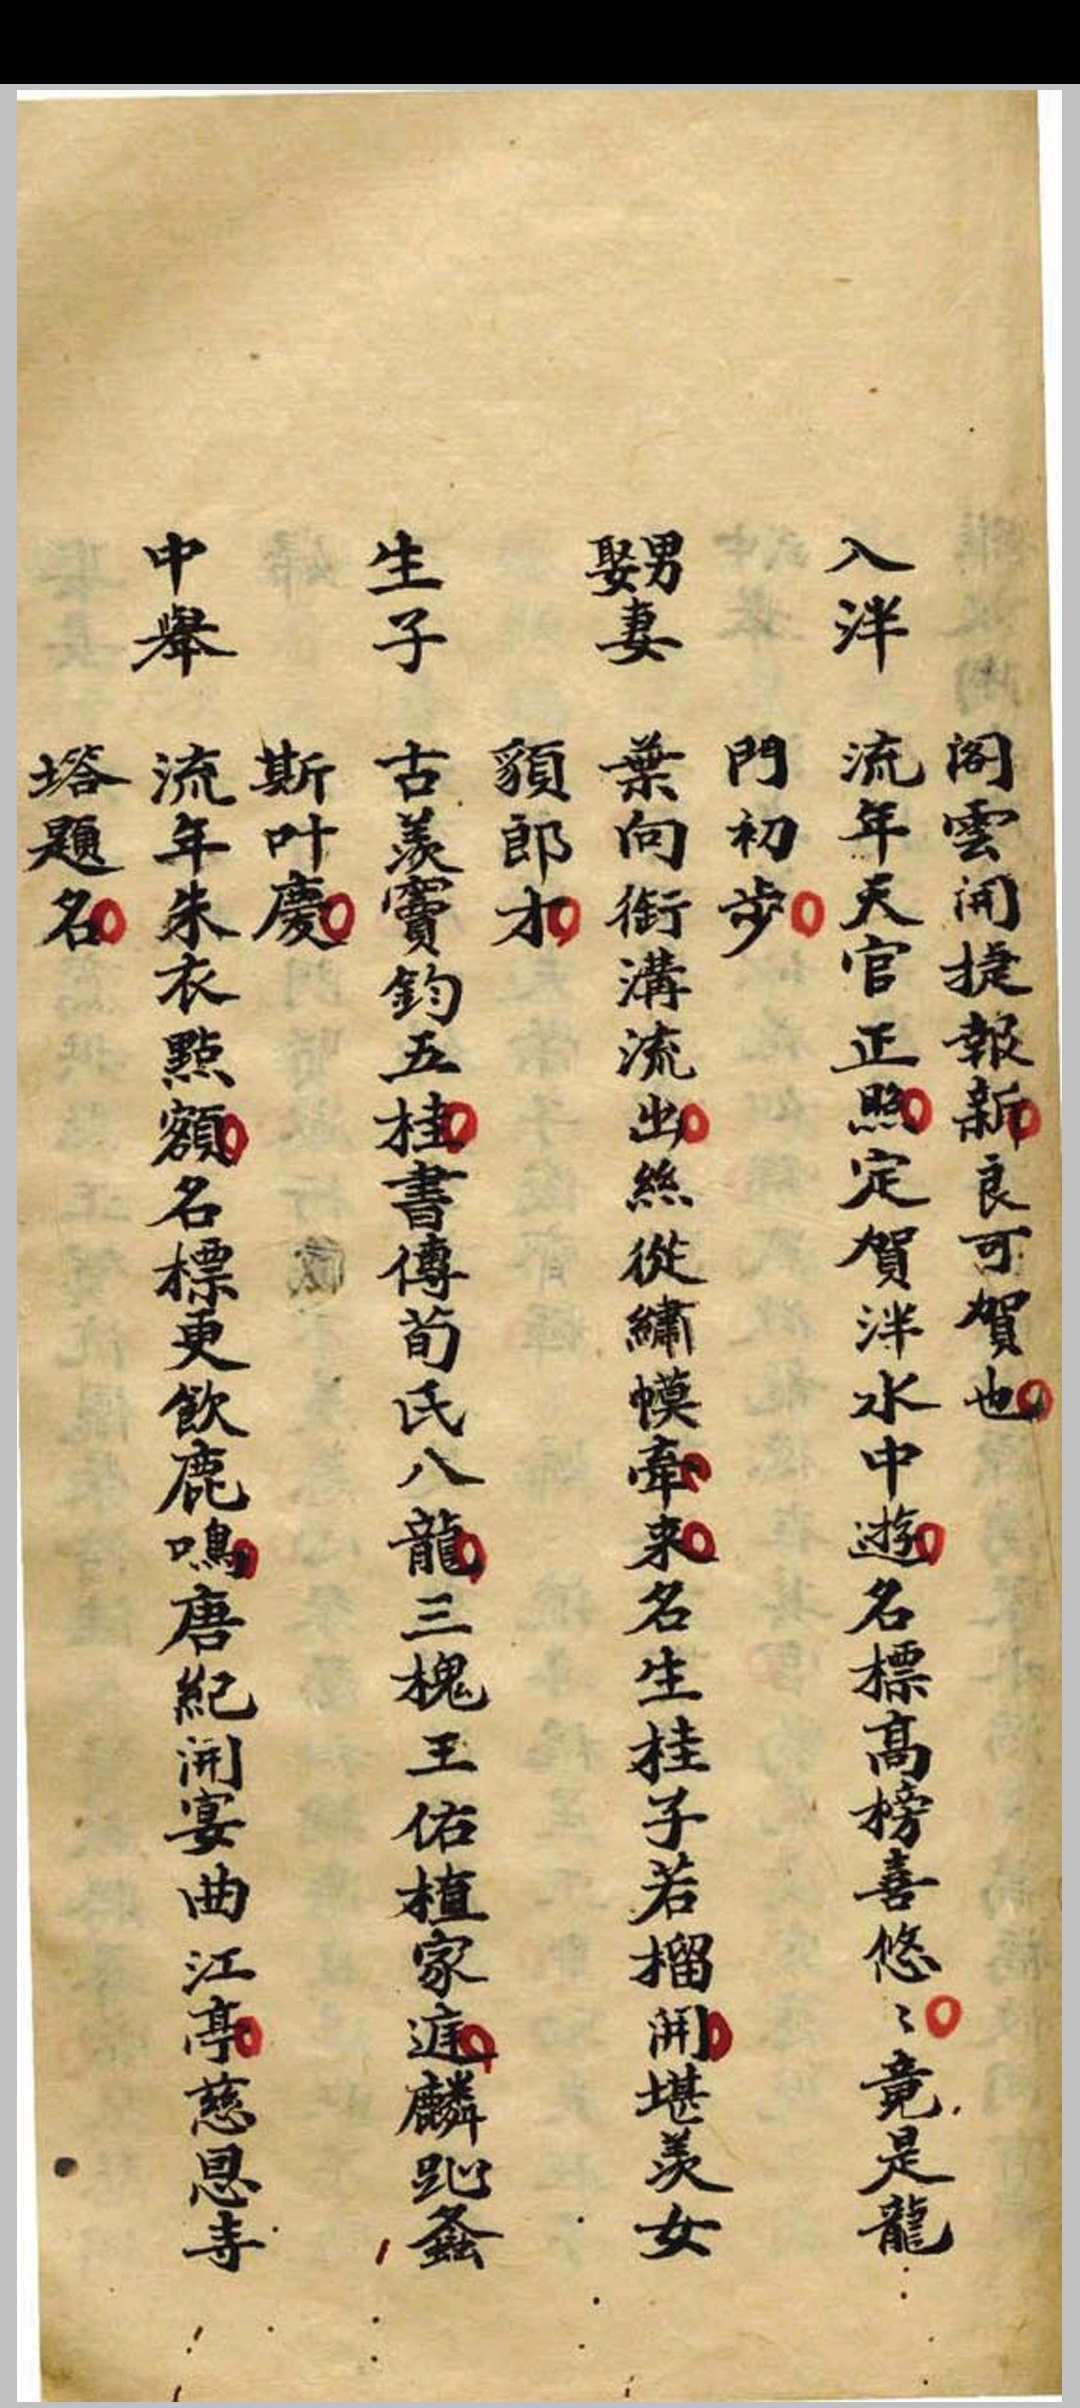 閣雲開捷報新良可賀也
入泮
流年天官正照定賀泮水中遊名標高榜喜悠〻竟是龍
門初步
男娶妻
葉向御溝流出絲從繡幙牽来名生桂子若榴開堪羨女
貌郎才
生子
古羨竇鈞五桂書傳荀氏八龍三槐王佑植家庭麟趾螽
斯叶慶
中舉
流年朱衣點額名標更飲鹿鳴唐紀開宴曲江亭慈恩寺
塔題名